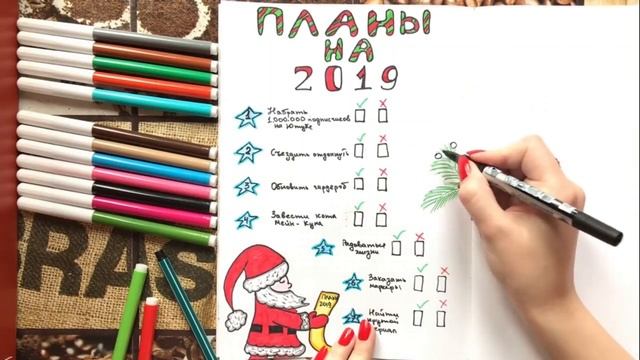 ПЛАНЫ
НА
2019
1 Набрать
1.000.000 подписчиков
на Ютубе
2 Съездить отдохнуть
3 Обновить гардероб
4 Завести кота
мейн-куна
5 Радоваться
жизни
6 Заказать
маркеры
Найти
крутой
ПЛАНЫ
2019
RAS